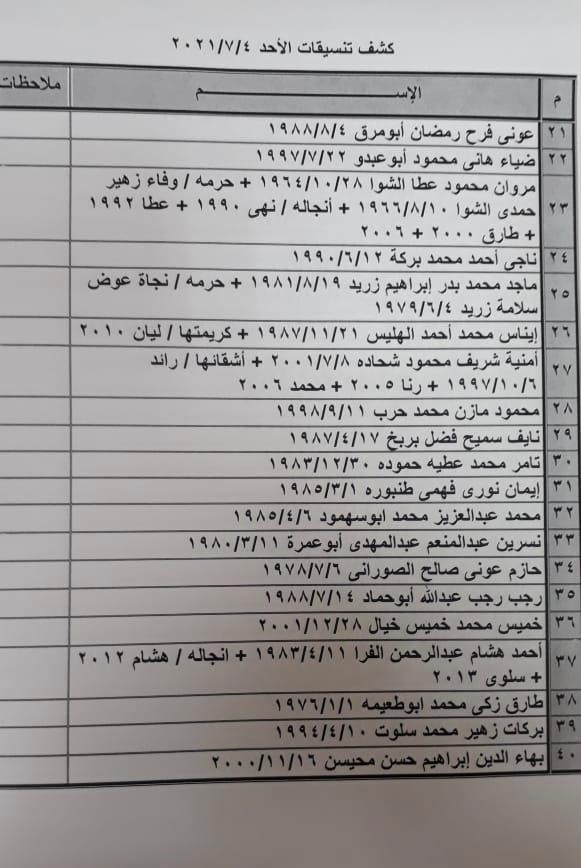 كشف تنسيقات الأحد ٢٠٢١/٧/٤
م الإســـــــــــــــــــــم ملاحظات
٢١ عونى فرح رمضان أبومرق ١٩٨٨/٨/٤
٢٢ ضياء هانى محمود أبوعبدو ١٩٩٧/٧/٢٢
مروان محمود عطا الشوا ١٩٦٤/١٠/٢٨ + حرمه / وفاء زهير
٢٣ حمدى الشوا ١٩٦٦/٨/١٠ + أنجاله / نهى ١٩٩٠ + عطا ١٩٩٢
+ طارق ٢٠٠٠ + ٢٠٠٦
٢٤ ناجى أحمد محمد بركة ١٩٩٠/٦/١٢
٢٥ ماجد محمد بدر إبراهيم زريد ١٩٨١/٨/١٩ + حرمه / نجاة عوض
سلامة زريد ١٩٧٩/٦/٤
٢٦ إيناس محمد أحمد الهليس ١٩٨٧/١١/٢١ + كريمتها / ليان ٢٠١٠
٢٧ أمنية شريف محمود شحاده ٢٠٠١/٧/٨ + أشقائها / رائد
١٩٩٧/١٠/٦ + رنا ٢٠٠٥ + محمد ٢٠٠٦
٢٨ محمود مازن محمد حرب ١٩٩٨/٩/١١
٢٩ نايف سميح فضل بربخ ١٩٨٧/٤/١٧
٣٠ تامر محمد عطيه حموده ١٩٨٣/١٢/٣٠
٣١ إيمان نورى فهمى طنبوره ١٩٨٥/٣/١
٣٢ محمد عبدالعزيز محمد ابوسهمود ١٩٨٥/٤/٦
٣٣ نسرين عبدالمنعم عبدالمهدى أبوعمرة ١٩٨٠/٣/١١
٣٤ حازم عونى صالح الصورانى ١٩٧٨/٧/٦
٣٥ رجب رجب عبدالله أبوحماد ١٩٨٨/٧/١٤
٣٦ خميس محمد خميس خيال ٢٠٠١/١٢/٢٨
٣٧ أحمد هشام عبدالرحمن الفرا ١٩٨٣/٤/١١ + انجاله / هشام ٢٠١٢
+ سلوى ٢٠١٣
٣٨ طارق زكى محمد ابوطعيمه ١٩٧٦/١/١
٣٩ بركات زهير محمد سلوت ١٩٩٤/٤/١٠
٤٠ بهاء الدين إبراهيم حسن محيسن ٢٠٠٠/١١/١٦